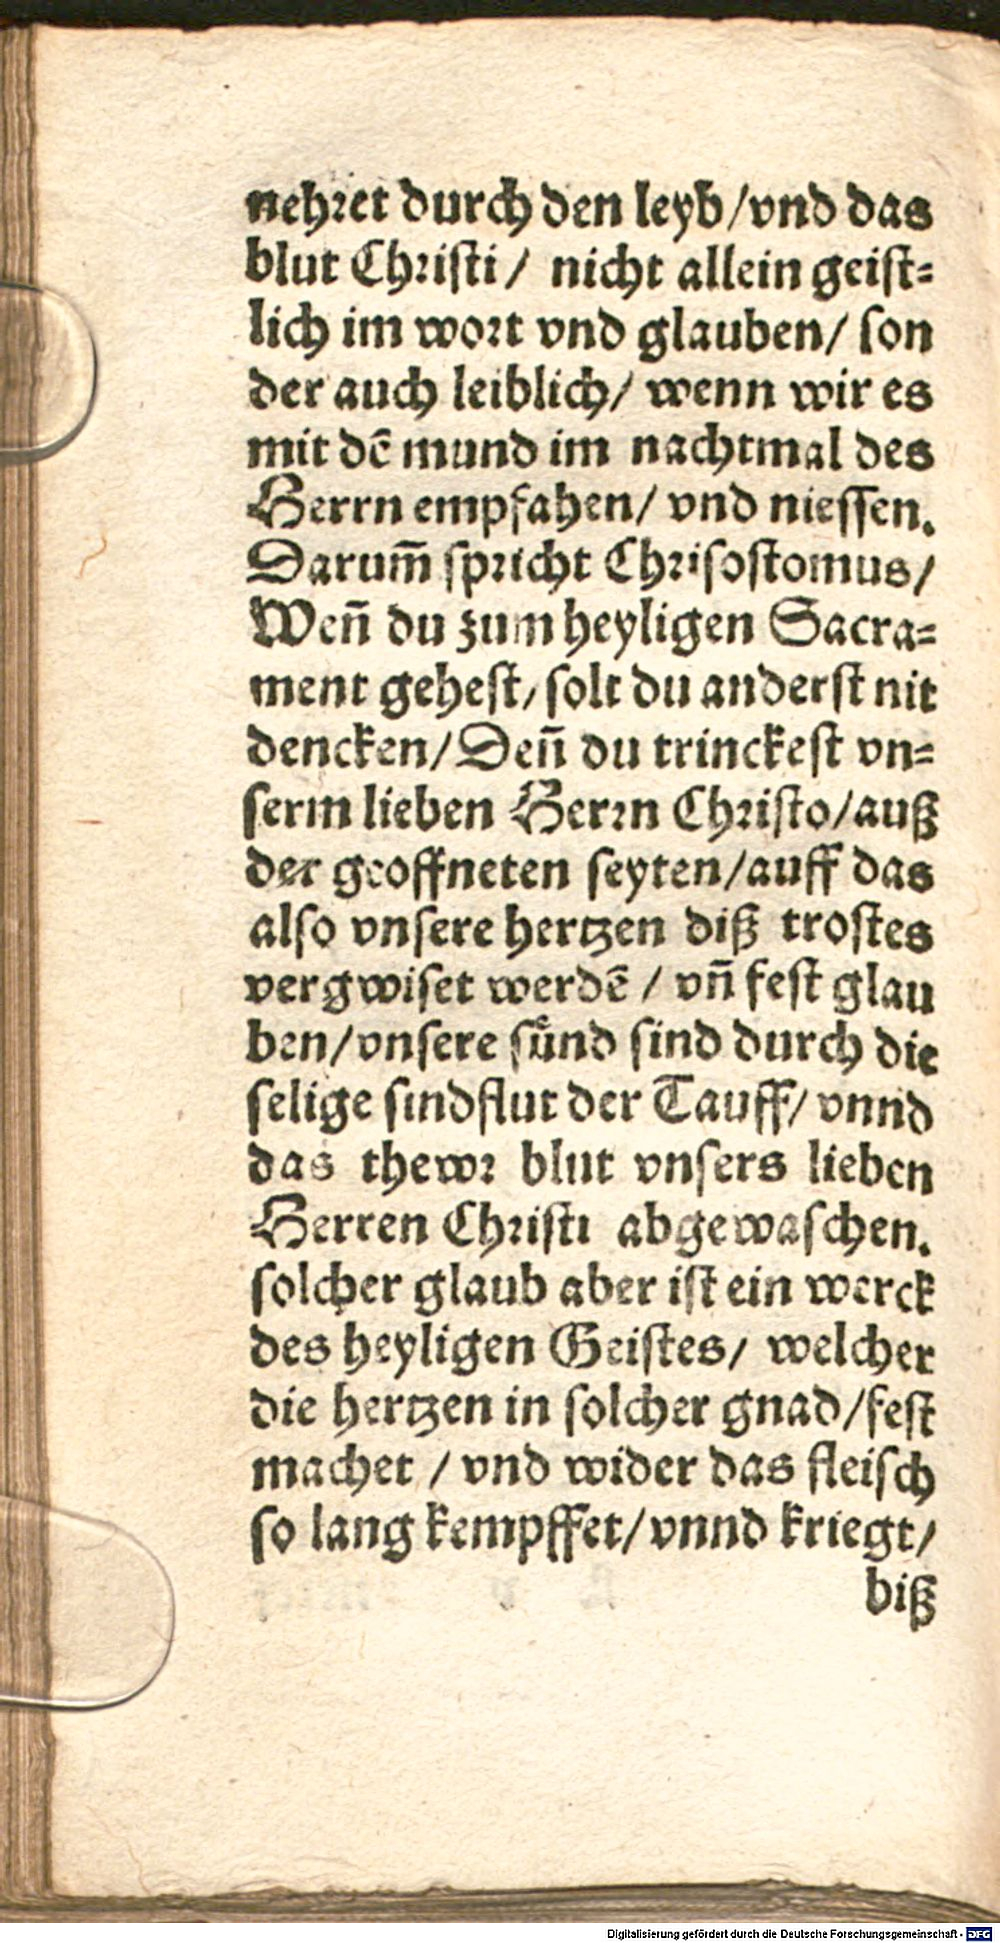 nehret durch den leyb/vnd das
blut Christi/ nicht allein geist-
lich im wort vnd glauben/ son
der auch leiblich/ wenn wir es
mit dē mund im nachtmal des
Herrn empfahen/ vnd niessen.
Darum̃ spricht Chrisostomus/
Wen̄ du zum heyligen Sacra-
ment gehest/ solt du anderst nit
dencken/ Den̄ du trinckest vn-
serm lieben Herrn Christo/auß
der geoffneten seyten/auff das
also vnsere hertzen diß trostes
vergwiset werdē / vn̄ fest glau
ben/vnsere sünd sind durch die
selige sindflut der Tauff/ vnnd
das thewr blut vnsers lieben
Herren Christi abgewaschen.
solcher glaub aber ist ein werck
des heyligen Geistes/ welcher
die hertzen in solcher gnad/fest
machet / vnd wider das fleisch
so lang kempffet/vnnd kriegt/
biß
Digitalisierung gefördert durch die Deutsche Forschungsgemeinschaft - DFG